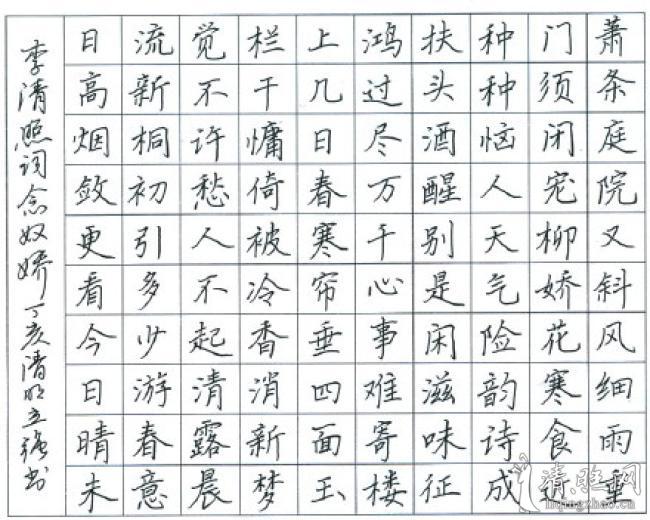 萧条庭院又斜风细雨垂
门须闭宠柳娇花寒食近
种种恼人天气险韵诗成
扶头酒醒别是闲滋味征
鸿过尽万千心事难寄楼
上几日春寒帘垂四面玉
栏干慵倚被冷香消新梦
觉不许愁人不起清露晨
流新桐初引多少游春意
日高烟敛更看今日晴未
李清照词念奴娇 丁亥清明立强书
清照网
liqingzhao.cn